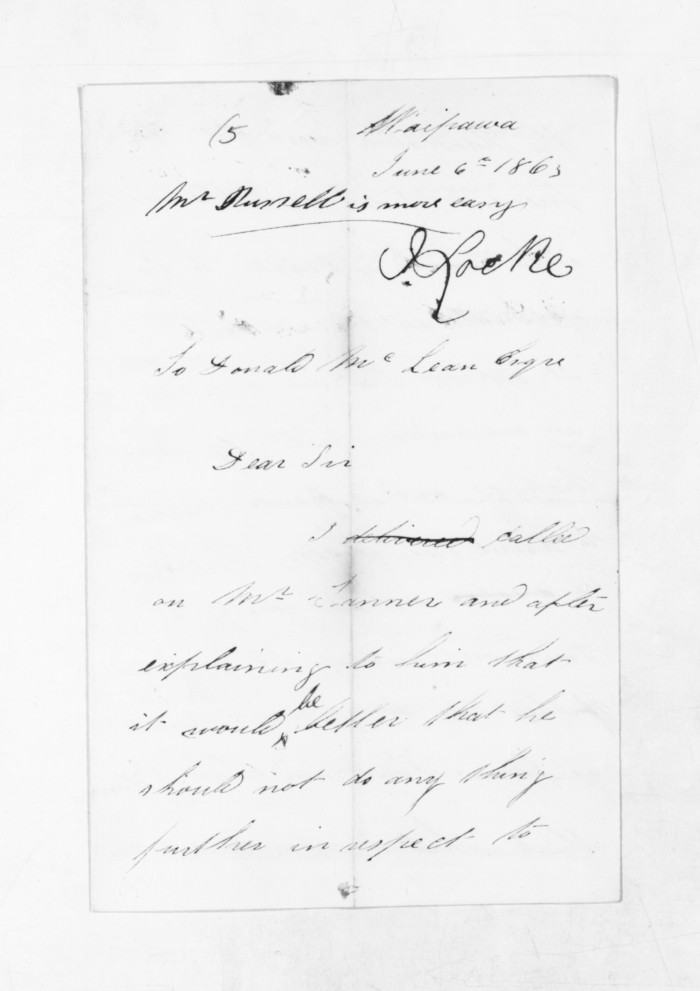 (5
Waipawa
June 6th 1863
Mr Russell is more easy
J Locke
To Donald Mc Lean Esqre
Dear Sir
I delivered called
on Mr Tanner and after
explaining to him that
it would be better that he
should not do any thing
further in respect to